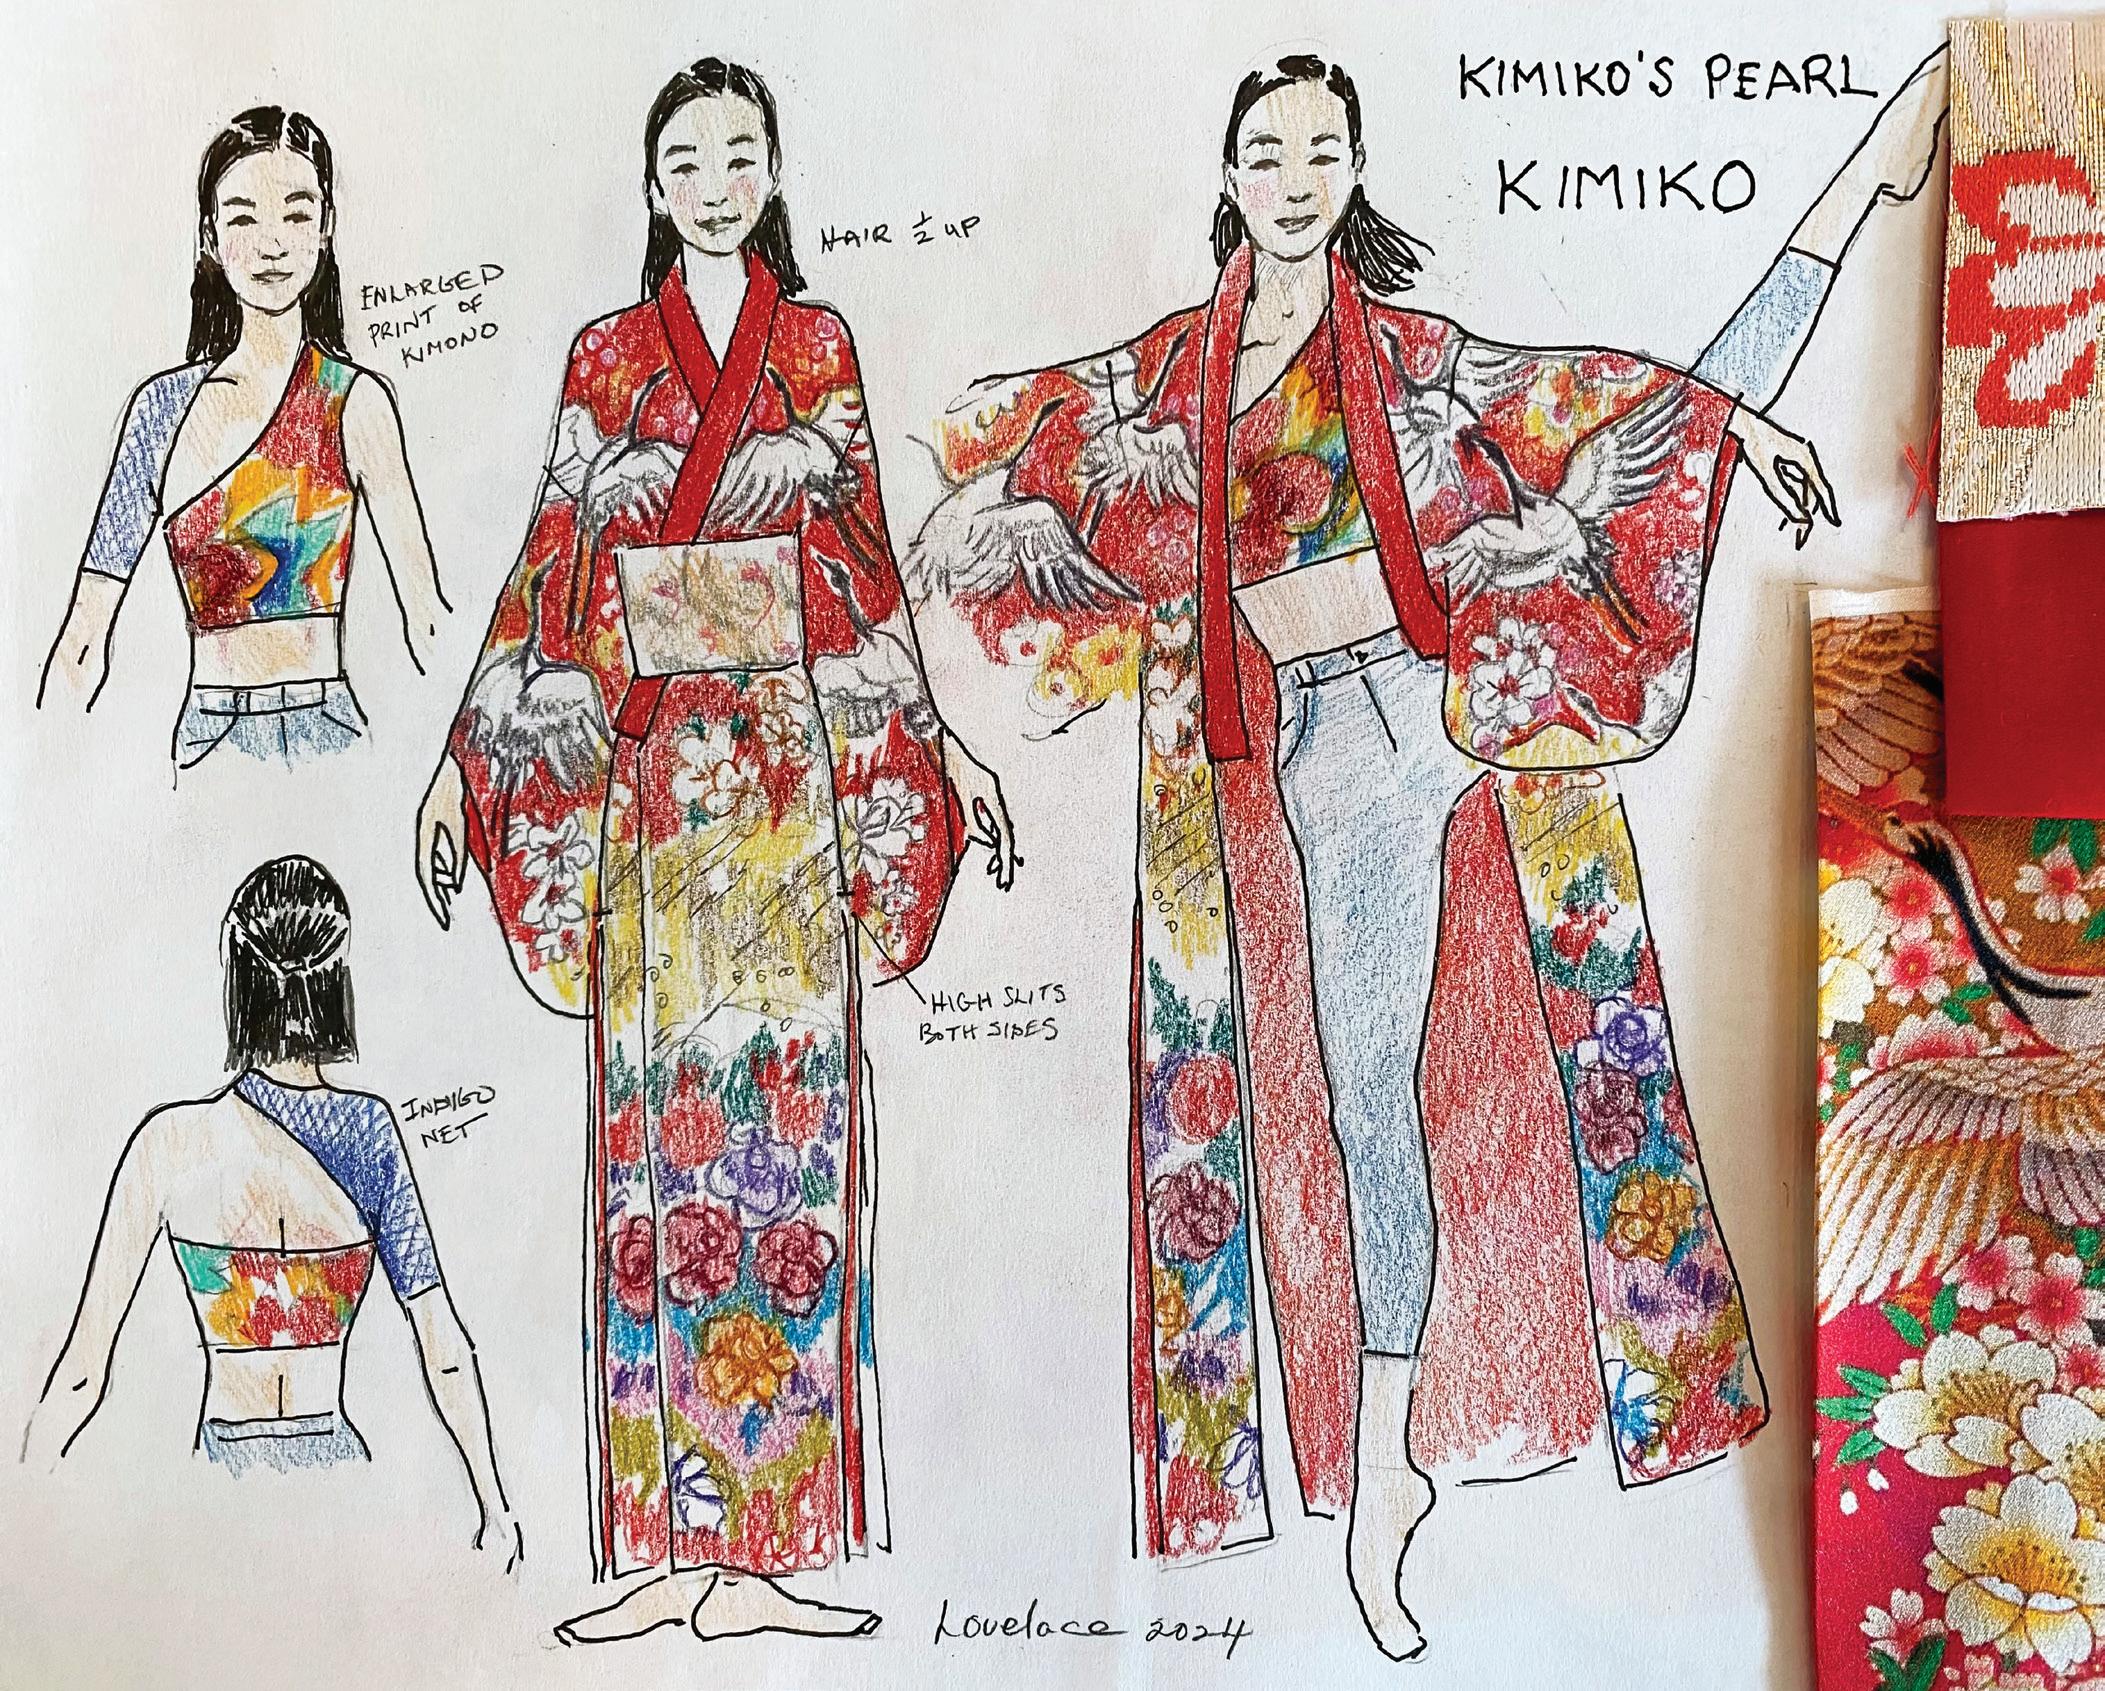 KIMIKO'S PEARL
KIMIKO
HAIR ½ UP
ENLARGED
PRINT OF
KIMONO
HIGH SLITS
BOTH SIDES
INDIGO
NET
Lovelace 2024